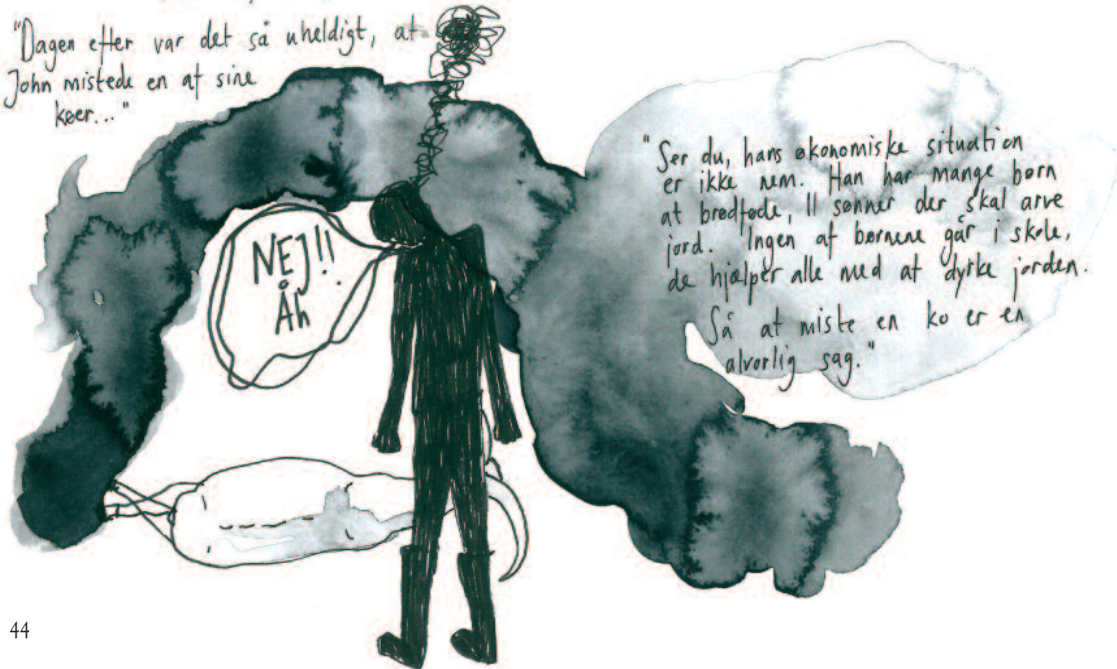 "Dagen efter var det så uheldigt, at
John mistede en af sine
køer..."
NEJ!!
Åh
"Ser du, hans økonomiske situation
er ikke nem. Han har mange børn
at brødføde, 11 sønner der skal arve
jord. Ingen af børnene går i skole,
de hjælper alle med at dyrke jorden.
Så at miste en ko er en
alvorlig sag."
44